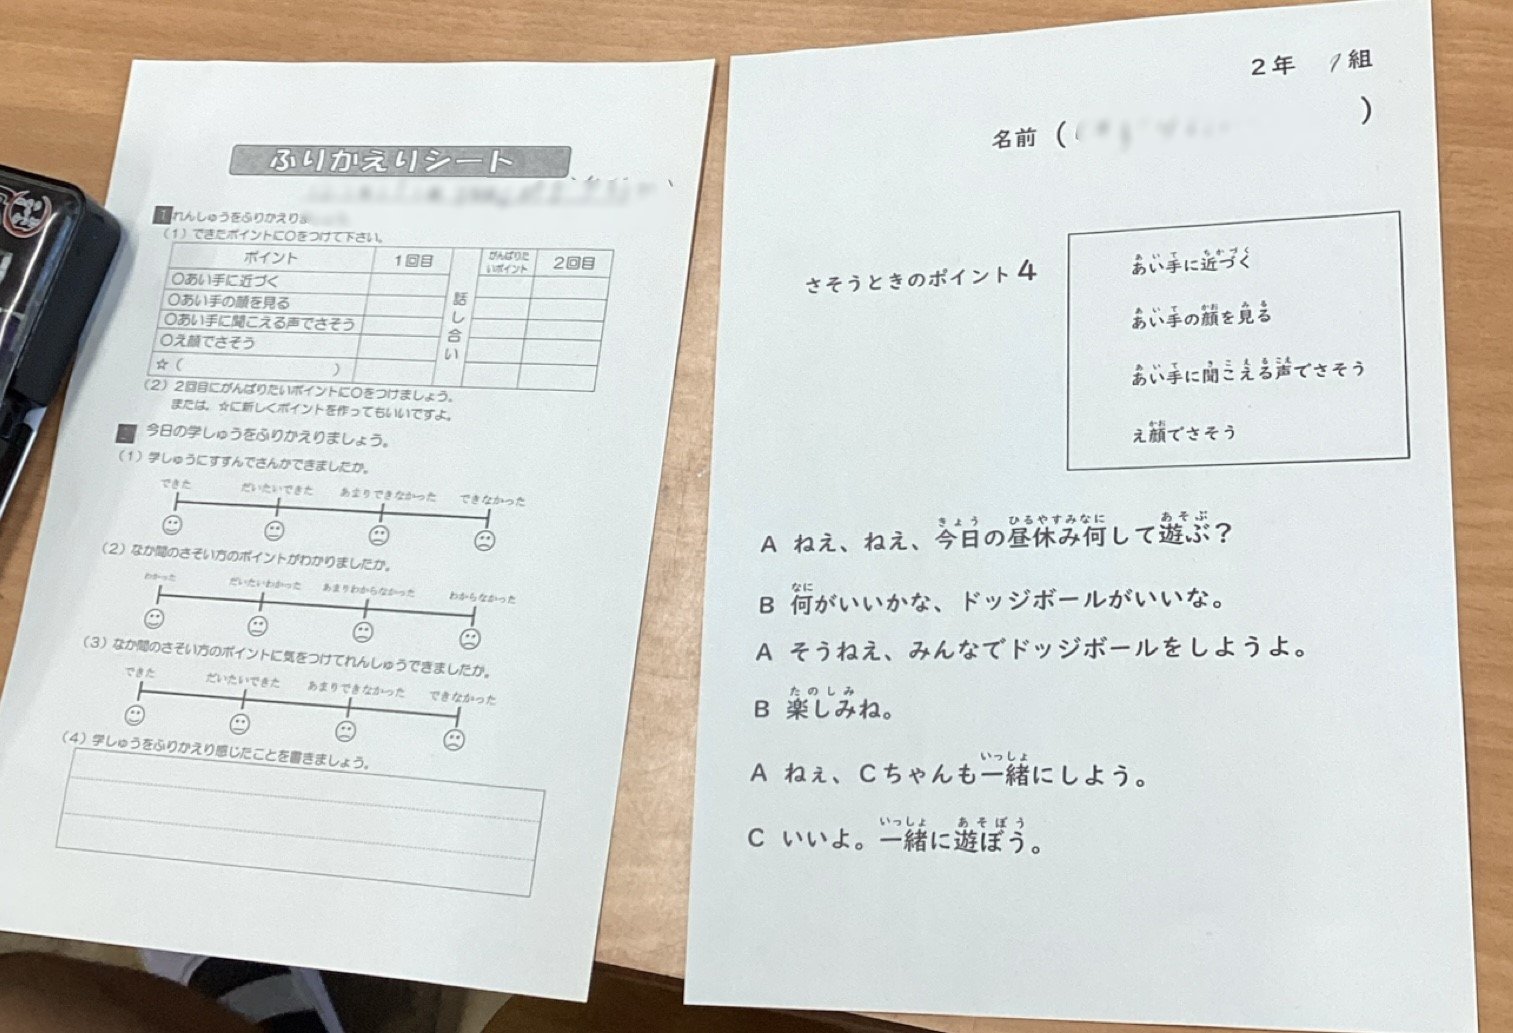 ふりかえりシート
1 れんしゅうをふりかえりま
(1) できたポイントに○をつけて下さい。
ポイント 1回目 がんばりたいポイント 2回目
○あい手に近づく
○あい手の顔を見る
○あい手に聞こえる声でさそう
○え顔でさそう
☆( )
話し合い
(2) 2回目にがんばりたいポイントに○をつけましょう。
または、☆に新しくポイントを作ってもいいですよ。
今日の学しゅうをふりかえりましょう。
(1) 学しゅうにすすんでさんかできましたか。
できた だいたいできた あまりできなかった できなかった
(2) なか間のさそい方のポイントがわかりましたか。
わかった だいたいわかった あまりわからなかった わからなかった
(3) なか間のさそい方のポイントに気をつけてれんしゅうできましたか。
できた だいたいできた あまりできなかった できなかった
(4) 学しゅうをふりかえり感じたことを書きましょう。
2年 1組
名前 ( )
さそうときのポイント4
あいて ちかづく
あい手に近づく
あいて かお みる
あい手の顔を見る
あいて きこえるこえ
あい手に聞こえる声でさそう
かお
え顔でさそう
きょう ひるやすみなに あそぶ
A ねえ、ねえ、今日の昼休み何して遊ぶ?
なに
B 何がいいかな、ドッジボールがいいな。
A そうねえ、みんなでドッジボールをしようよ。
たのしみ
B 楽しみね。
いっしょ
A ねぇ、Cちゃんも一緒にしよう。
いっしょ あそぼう
C いいよ。一緒に遊ぼう。